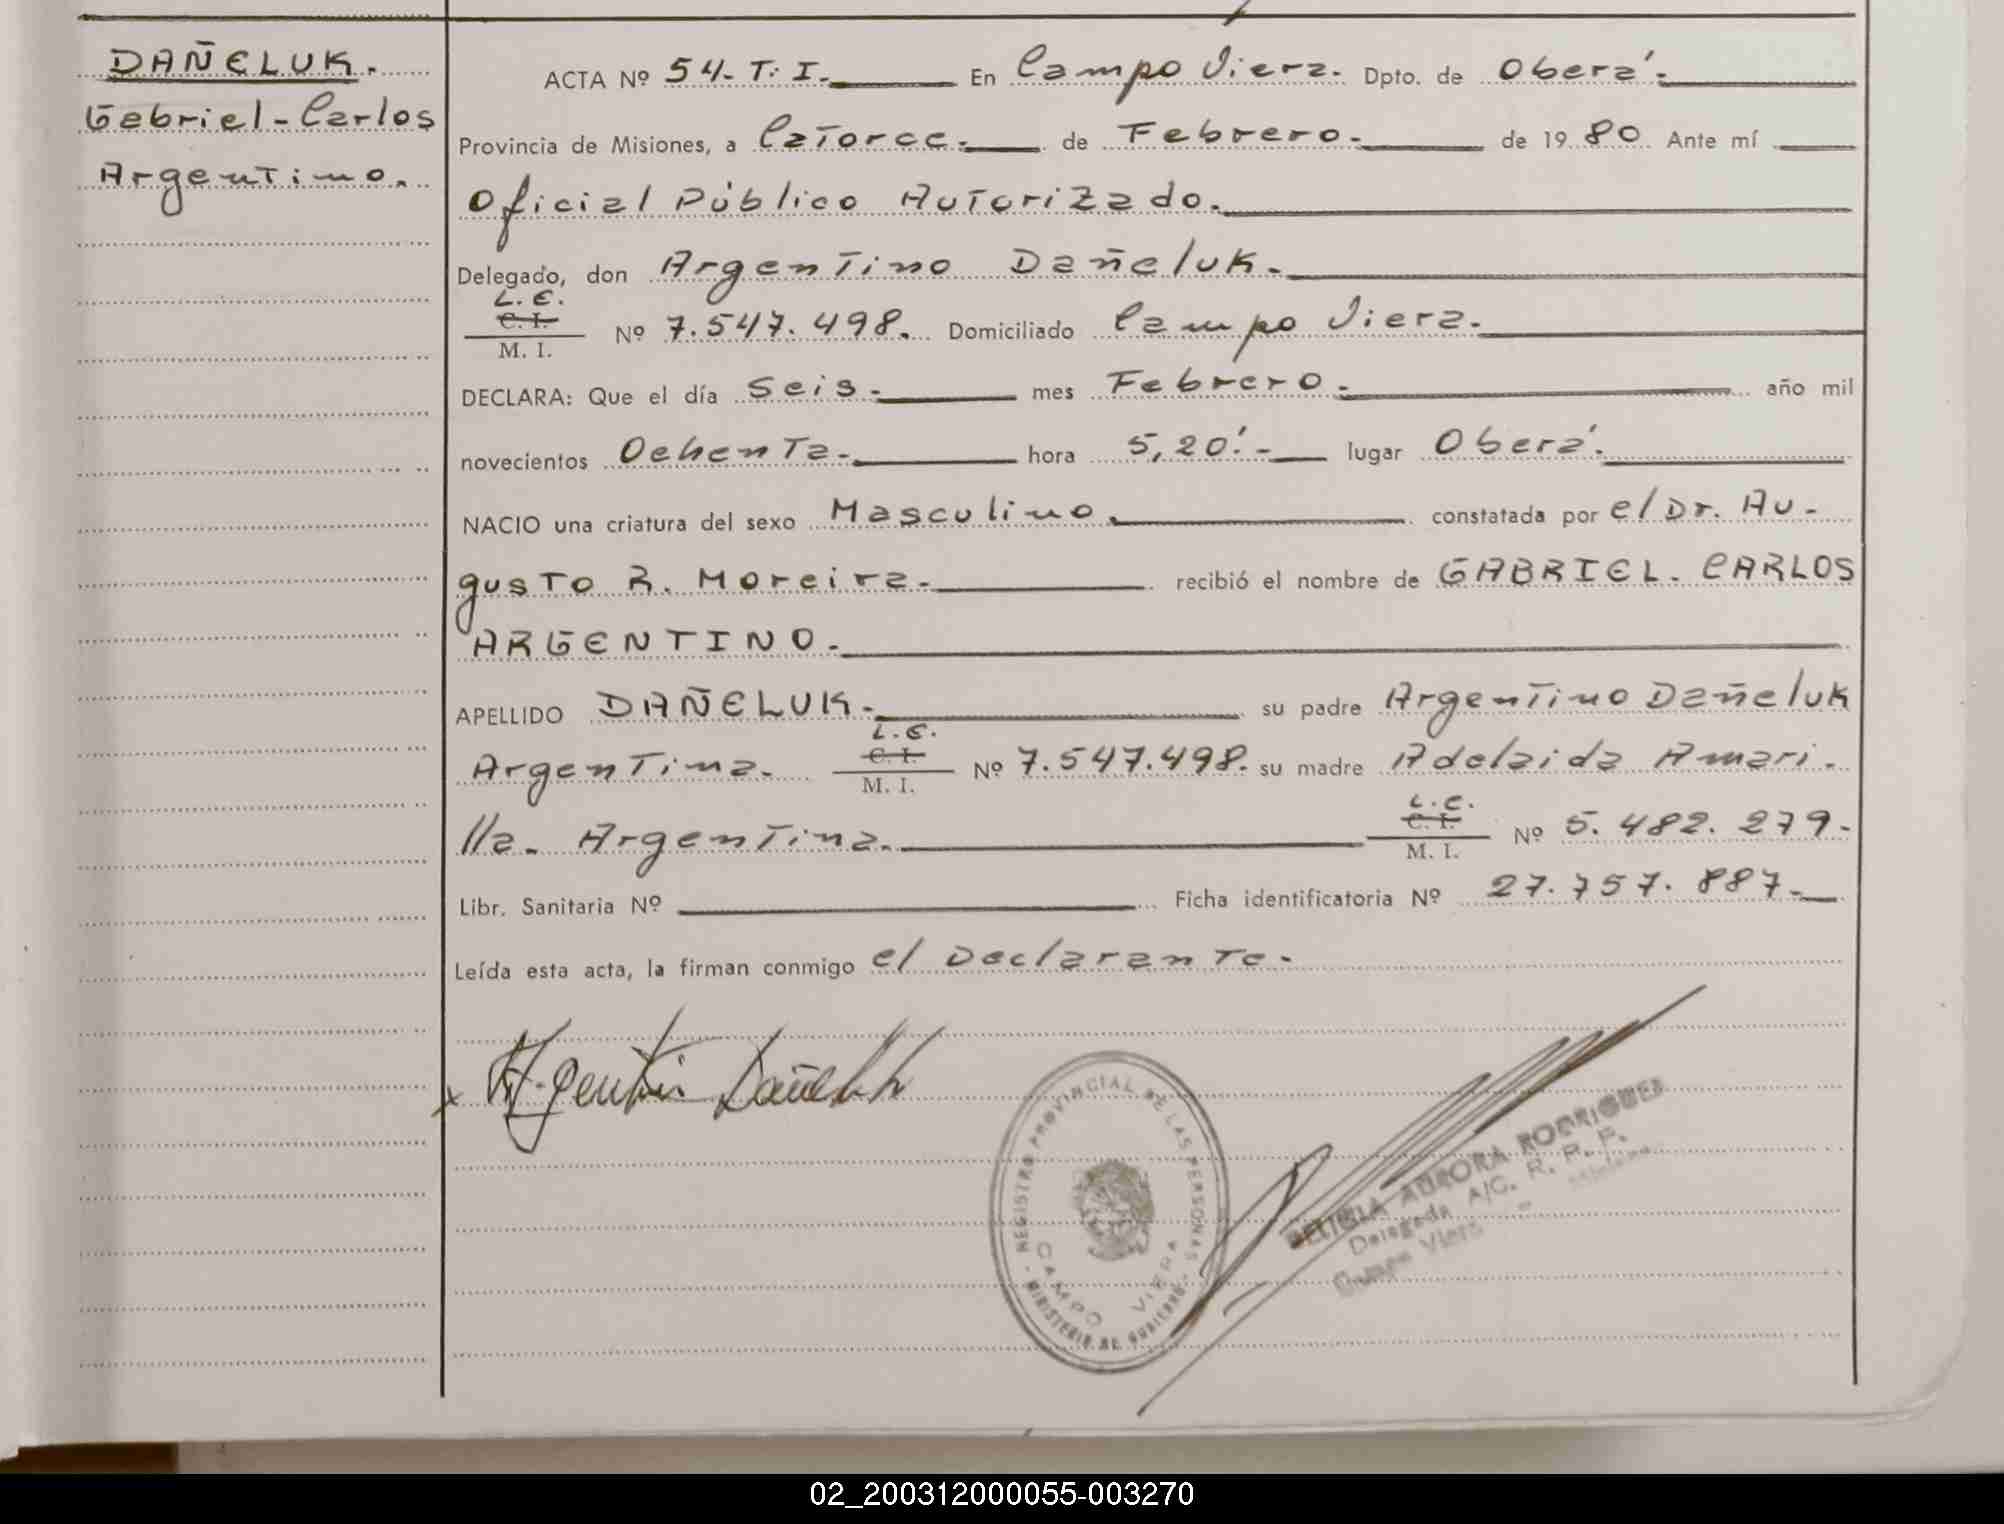 DAÑELUK.
Gabriel-Carlos
Argentino.
ACTA Nº 54. T. I. En Campo Viera. Dpto. de Oberá.
Provincia de Misiones, a Catorce. de Febrero. de 1980 Ante mí
Oficial Público Autorizado.
Delegado, don Argentino Dañeluk.
L. E.
C. I.
M. I.
Nº 7.547.498. Domiciliado Campo Viera.
DECLARA: Que el día Seis. mes Febrero. año mil
novecientos Ochenta. hora 5,20'. lugar Oberá.
NACIO una criatura del sexo Masculino. constatada por el Dr. Au-
gusto R. Moreira. recibió el nombre de GABRIEL. CARLOS
ARGENTINO.
APELLIDO DAÑELUK. su padre Argentino Dañeluk
L. E.
Argentina. C. I. Nº 7.547.498. su madre Adelaida Amari-
M. I.
L. C.
lla. Argentina. C. I. Nº 5.482.279.
M. I.
Libr. Sanitaria Nº Ficha identificatoria Nº 27.757.887.
Leída esta acta, la firman conmigo el Declarante.
x Argentino Dañeluk
REGISTRO PROVINCIAL DE LAS PERSONAS
CAMPO VIERA
MINISTERIO DE GOBIERNO
AURORA RODRIGUEZ
Delegada A/C. R. P. P.
Campo Viera - Misiones
02_200312000055-003270